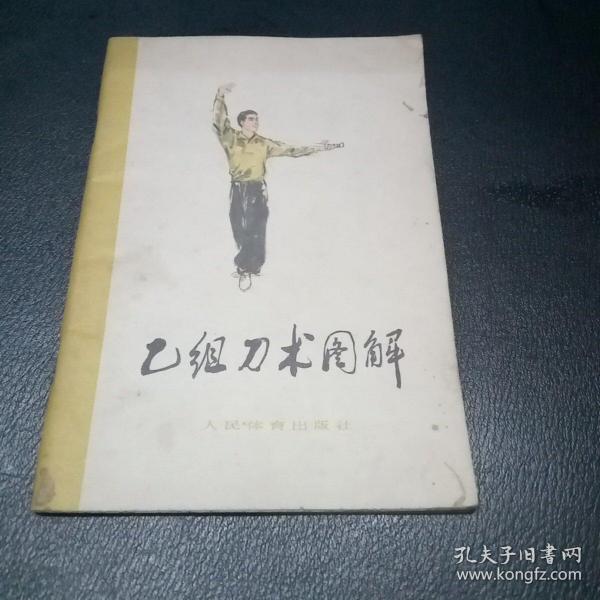 乙组刀术图解
人民体育出版社
孔夫子旧书网
www.kongfz.com